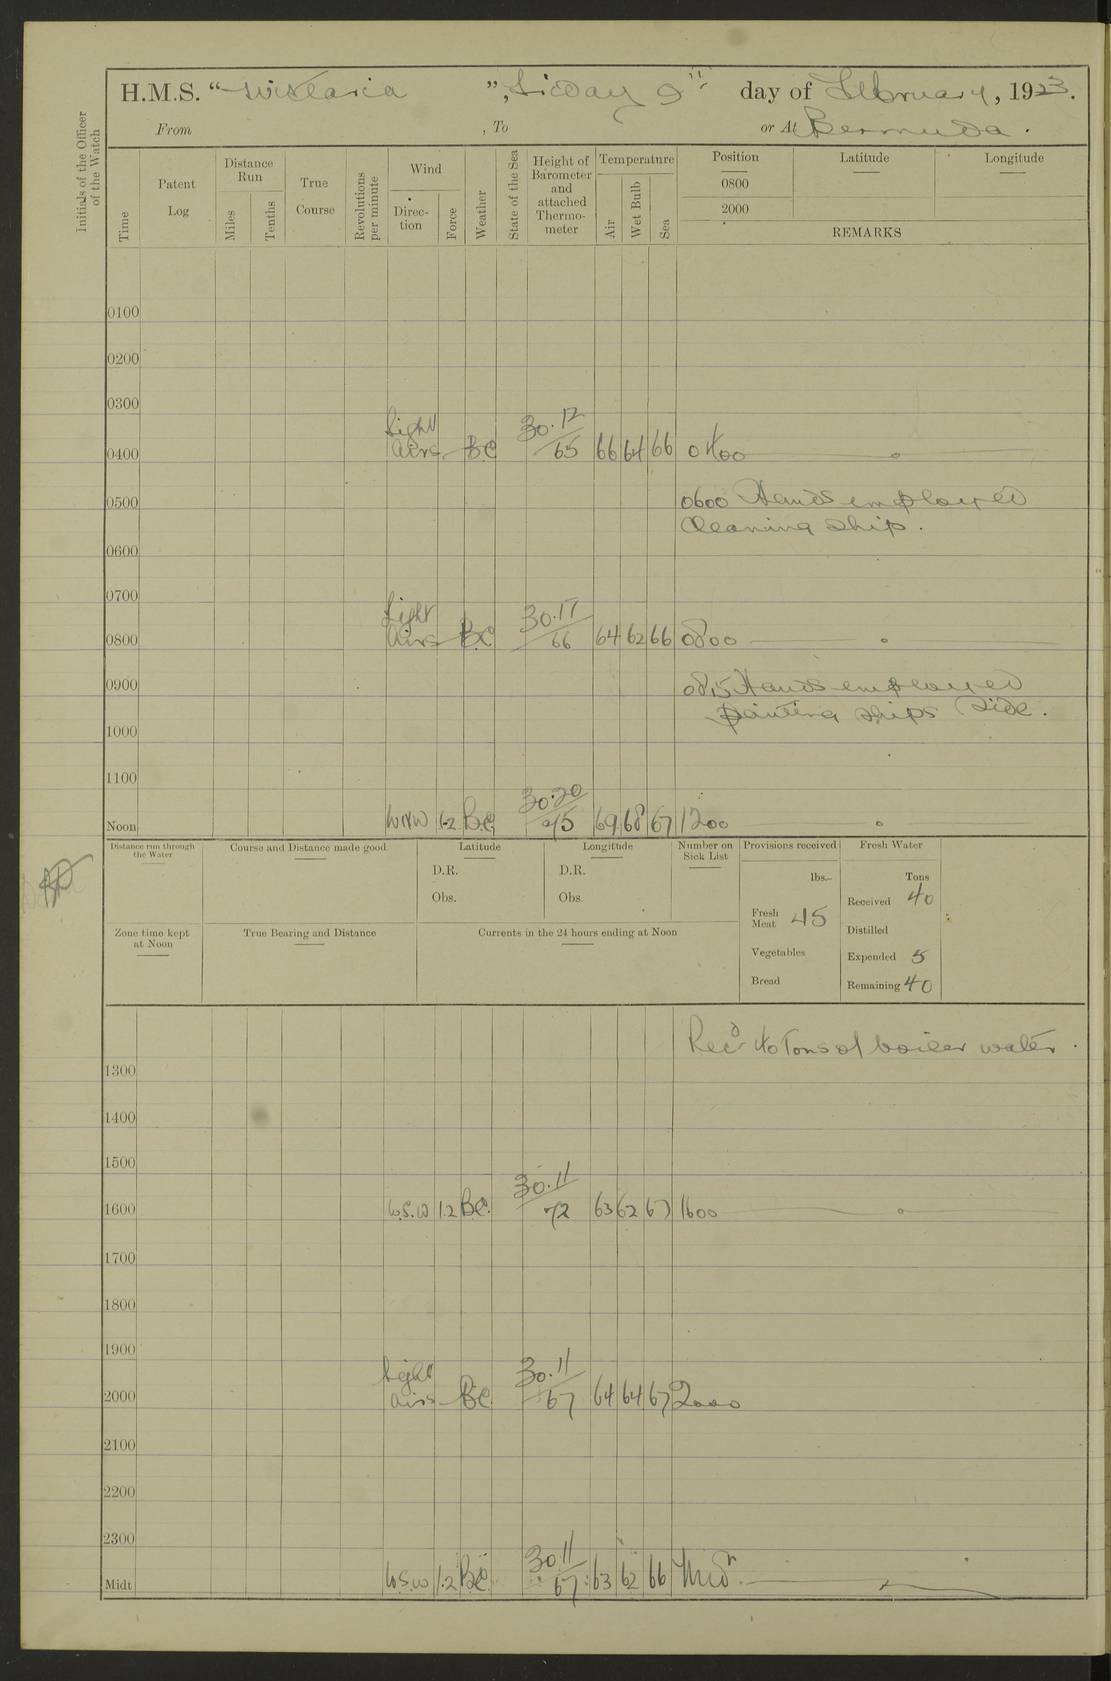 H.M.S. “Wistaria ”, Friday 9th day of February, 1923.
From , To or At Bermuda.
Initials of the Officer of the Watch
Time
Patent Log
Distance Run
Miles
Tenths
True Course
Revolutions per minute
Wind
Direc-tion
Force
Weather
State of the Sea
Height of Barometer and attached Thermo-meter
Temperature
Air
Wet Bulb
Sea
Position Latitude Longitude
0800
2000
REMARKS
0100
0200
0300
0400 Light Airs - BC 30.12/65 66 64 66 0400
0500 0600 Hands employed
Cleaning Ship.
0600
0700
0800 Light Airs - BC 30.17/66 64 62 66 0800
0900 0815 Hands employed
painting ships side.
1000
1100
Noon WNW 1-2 B.C. 30.20/75 69 68 67 1200
Distance run through the Water
Course and Distance made good
Latitude
D.R.
Obs.
Longitude
D.R.
Obs.
Number on Sick List
Provisions received
lbs.
Fresh Meat 45
Vegetables
Bread
Fresh Water
Tons
Received 40
Distilled
Expended 5
Remaining 40
Zone time kept at Noon
True Bearing and Distance
Currents in the 24 hours ending at Noon
Recd 40 Tons of boiler water.
1300
1400
1500
1600 W.S.W 1.2 BC. 30.11/72 63 62 67 1600
1700
1800
1900
2000 Light airs - BC 30.11/67 64 64 67 2000
2100
2200
2300
Midt W.S.W 1.2 BC 30.11/67 63 62 66 Midt.